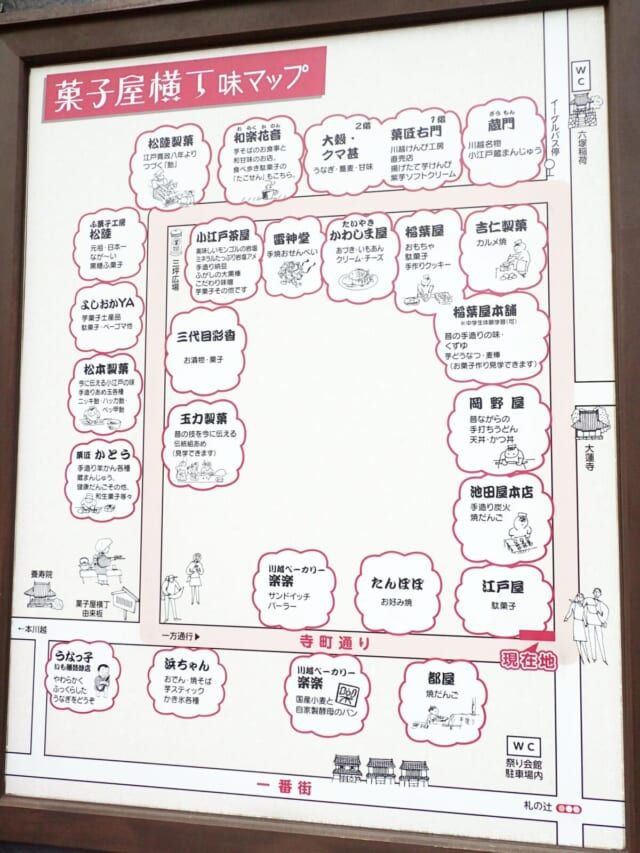 菓子屋横丁味マップ
WC
六塚稲荷
イーグルバス停
松陸製菓
江戸寛政八年より
つづく「飴」
わらくかのん
和楽花音
芋そばのお食事と
和甘味のお店。
食べ歩き駄菓子の
「たこせん」もこちら。
2階
大穀・
クマ甚
うなぎ・蕎麦・甘味
1階
菓匠右門
川越けんぴ工房
直売店
揚げたて芋けんぴ
紫芋ソフトクリーム
ざうもん
蔵門
川越名物
小江戸蔵まんじゅう
ふ菓子工房
松陸
元祖・日本一
なが〜い
黒糖ふ菓子
三坪広場
小江戸茶屋
美味しいモンゴルの岩塩
ミネラルたっぷり岩塩アメ
手造り納豆
ふがしの大黒棒
こだわり味噌
芋菓子その他です
雷神堂
手焼おせんべい
たいやき
かわしま屋
あづき・いもあん
クリーム・チーズ
稲葉屋
おもちゃ
駄菓子
手作りクッキー
吉仁製菓
カルメ焼
よしおかYA
芋菓子土産品
駄菓子・ベーゴマ他
三代目彩香
お漬物・菓子
稲葉屋本舗
※中学生体験学習(可)
昔の手造りの味・
くずゆ
芋どうなつ・麦棒
(お菓子作り見学できます)
松本製菓
今に伝える小江戸の味
手造りあめ玉各種
ニッキ飴・ハッカ飴・
ベッ甲飴
玉力製菓
昔の技を今に伝える
伝統組あめ
(見学できます)
岡野屋
昔ながらの
手打ちうどん
天丼・かつ丼
大蓮寺
菓匠 かとう
手造り羊かん各種
蔵まんじゅう、
健康だんごその他、
和生菓子等々
池田屋本店
手造り炭火
焼だんご
養寿院
菓子屋横丁
由来板
川越ベーカリー
楽楽
サンドイッチ
パーラー
たんぽぽ
お好み焼
江戸屋
駄菓子
←本川越
一方通行▶
寺町通り
現在地
うなっ子
やわらかく
ふっくらした
うなぎをどうぞ
浜ちゃん
おでん・焼そば
芋スティック
かき氷各種
川越ベーカリー
楽楽
国産小麦と
自家製酵母のパン
都屋
焼だんご
WC
祭り会館
駐車場内
一番街
札の辻